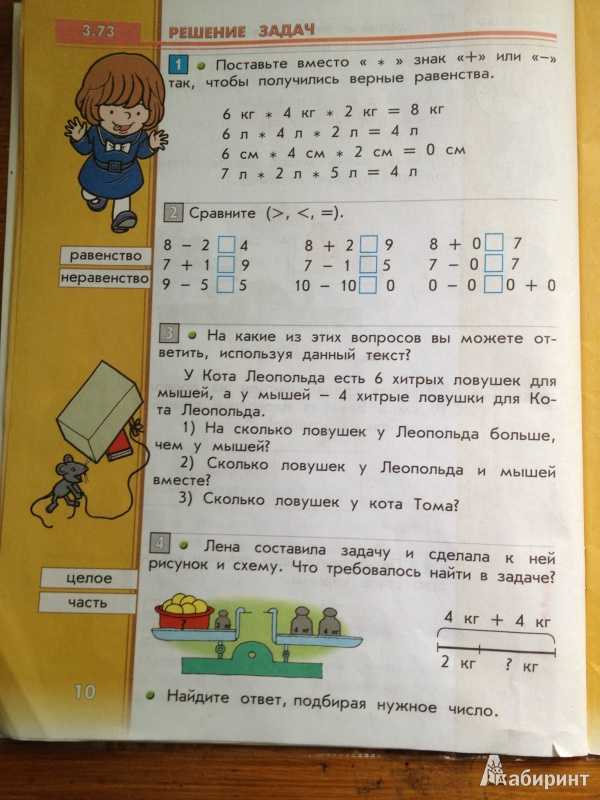 3.73 РЕШЕНИЕ ЗАДАЧ
1 • Поставьте вместо « * » знак «+» или «−»
так, чтобы получились верные равенства.
6 кг * 4 кг * 2 кг = 8 кг
6 л * 4 л * 2 л = 4 л
6 см * 4 см * 2 см = 0 см
7 л * 2 л * 5 л = 4 л
2 Сравните (>, <, =).
равенство
неравенство
8 − 2 □ 4 8 + 2 □ 9 8 + 0 □ 7
7 + 1 □ 9 7 − 1 □ 5 7 − 0 □ 7
9 − 5 □ 5 10 − 10 □ 0 0 − 0 □ 0 + 0
3 • На какие из этих вопросов вы можете от-
ветить, используя данный текст?
У Кота Леопольда есть 6 хитрых ловушек для
мышей, а у мышей – 4 хитрые ловушки для Ко-
та Леопольда.
1) На сколько ловушек у Леопольда больше,
чем у мышей?
2) Сколько ловушек у Леопольда и мышей
вместе?
3) Сколько ловушек у кота Тома?
4 • Лена составила задачу и сделала к ней
рисунок и схему. Что требовалось найти в задаче?
целое
часть
?
4 кг + 4 кг
2 кг ? кг
• Найдите ответ, подбирая нужное число.
10
Лабиринт